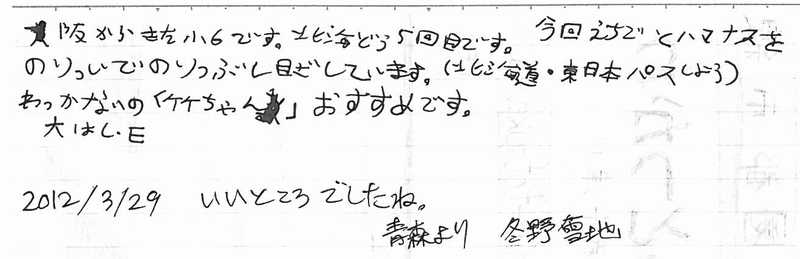 大阪からきた小6です。北海どう5回目です。今回えちごとハマナスを
のりついでのりつぶし目ざしています。(北海道・東日本パスしよう)
わっかないの「ケケちゃん」おすすめです。
大はし.E
2012/3/29 いいところでしたね。
青森より 冬野雪地